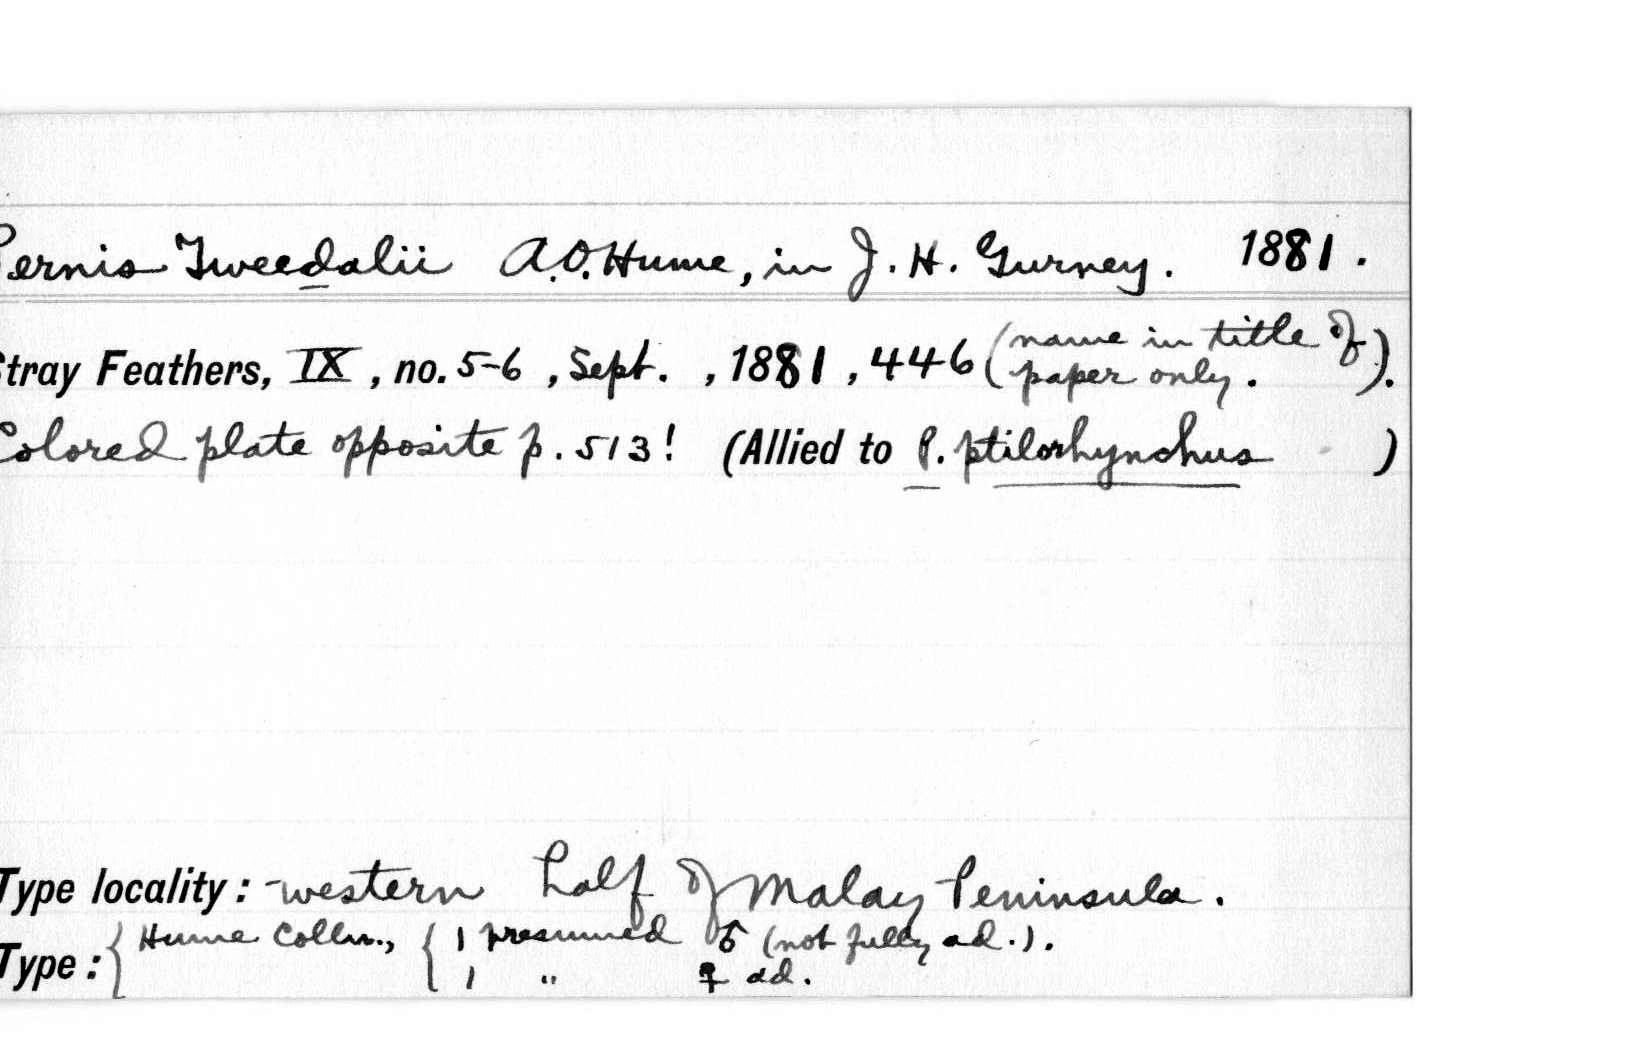 Pernis Tweedalii A.O. Hume, in J. H. Gurney. 1881.
Stray Feathers, IX, no. 5-6, Sept. , 1881, 446 (name in title of paper only.).
Colored plate opposite p. 513! (Allied to P. ptilorhynchus )
Type locality: western half of Malay Peninsula.
Type: { Hume Colln., { 1 presumed ♂ (not fully ad.).
1 " ♀ ad.